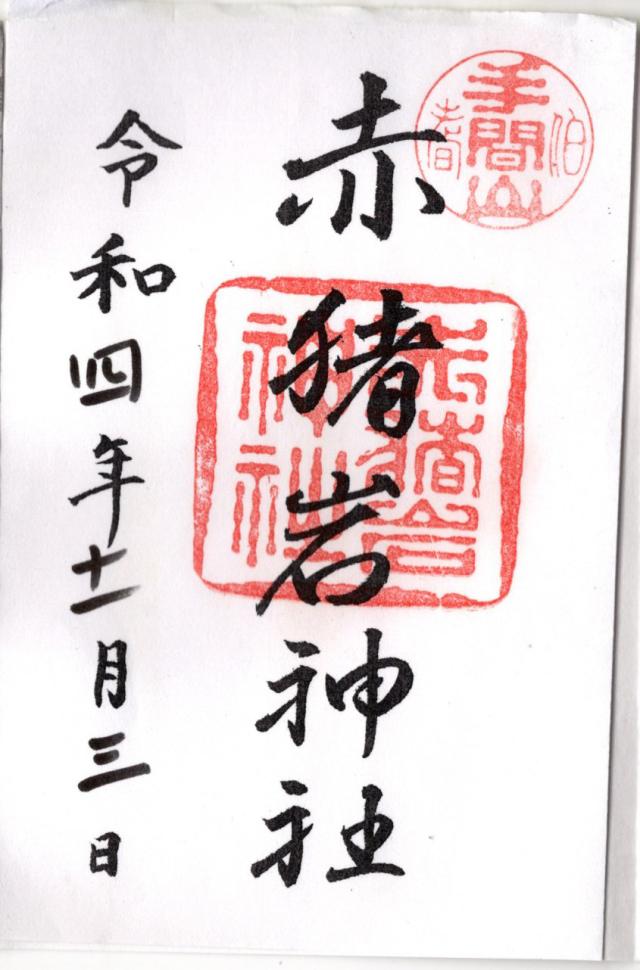 伯耆
手間山
赤猪岩神社
赤猪岩
神社
令和四年十一月三日